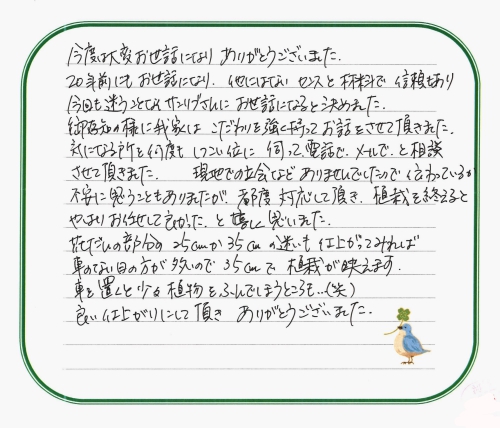 今度は大変お世話になり ありがとうございました.
20年前にもお世話になり. 他にはない センスと 材料で 信頼もあり
今回も迷うことなく サンリブさんに お世話になると決めました.
御存知の様に我家は こだわりを強く持って お話をさせて頂きました.
気になる所を何度も しつこい位に 伺って、電話で. メールで. と相談
させて頂きました. 現地での立会などありませんでしたので 伝わっているか
不安に思うこともありましたが. 都度 対応して頂き. 植栽を終えると
やっぱりお任せして良かった. と嬉しく思いました.
の部分の 25cmか 35cmの迷いも 仕上がってみれば
車のない日の方が 多いので 35cmで 植栽が映えます.
車を置くと少々 植物を ふんでしまうところも..(笑)
良い仕上がりにして頂き ありがとうございました.